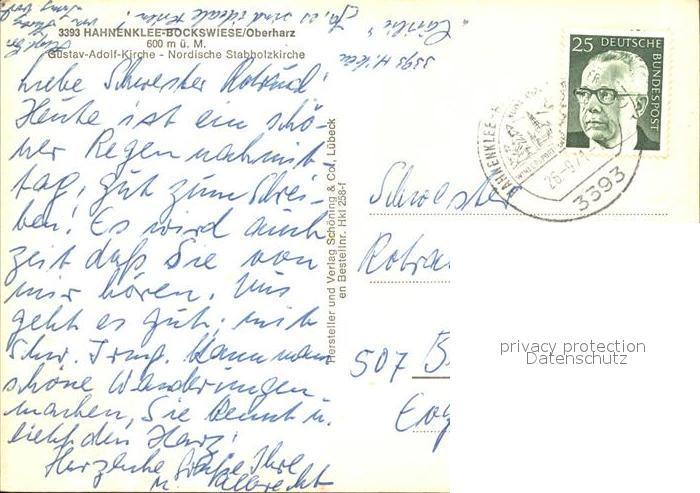 3393 HAHNENKLEE-BOCKSWIESE/Oberharz
600 m ü. M.
Gustav-Adolf-Kirche - Nordische Stabholzkirche
Liebe Schwester Rotraud!
Heute ist ein schö-
ner Regennachmit
tag, gut zum Schrei-
ben! Es wird auch
zeit daß Sie von
mir hören. Uns
geht es gut; mit
Schw. Irmg. kann man
schöne Wanderungen
machen, Sie kennt u.
liebt den Harz!
Herzliche Grüße Ihre
Albrecht
3393 H.'klee
Hersteller und Verlag Schöning & Co, Lübeck
en Bestellnr. Hkl 258-f
25 DEUTSCHE BUNDESPOST
HAHNENKLEE-
3393
Schwester
Rotrau
507 B
Evg
privacy protection
Datenschutz